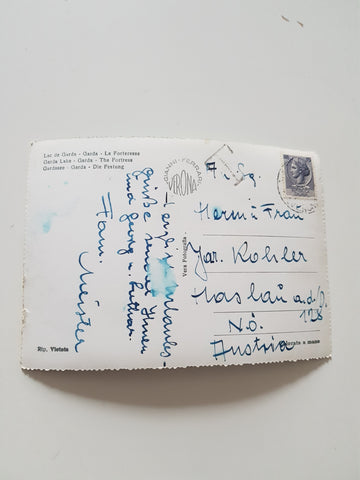 Lac de Garda - Garda - La Forteresse
Garda Lake - Garda - The Fortress
Gardasee - Garda - Die Festung
GIANNI - FERRARI
VERONA
Herzl. Urlaubs-
grüße sendet Ihnen
Fam. Meister
Vera Fotografia
Herrn u. Frau
Jar. Kohler
Haslau a.d.D.
128
N.Ö.
Austria
Rip. Vietata